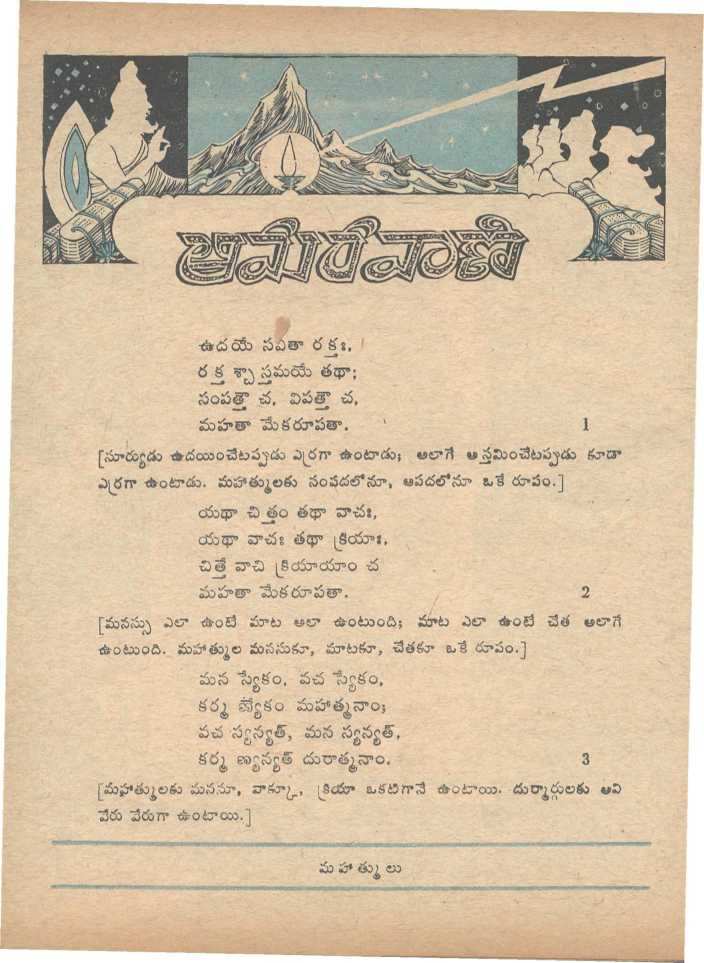 అమరవాణి
ఉదయే సవితా రక్తః,
రక్త శ్చా స్తమయే తథా;
సంపత్తౌ చ, విపత్తౌ చ,
మహతా మేకరూపతా. 1
[సూర్యుడు ఉదయించేటప్పుడు ఎర్రగా ఉంటాడు; అలాగే అస్తమించేటప్పుడు కూడా
ఎర్రగా ఉంటాడు. మహాత్ములకు సంపదలోనూ, ఆపదలోనూ ఒకే రూపం.]
యథా చిత్తం తథా వాచః,
యథా వాచః తథా క్రియాః,
చిత్తే వాచి క్రియాయాం చ
మహతా మేకరూపతా. 2
[మనస్సు ఎలా ఉంటే మాట అలా ఉంటుంది; మాట ఎలా ఉంటే చేత అలాగే
ఉంటుంది. మహాత్ముల మనసుకూ, మాటకూ, చేతకూ ఒకే రూపం.]
మన స్యేకం, వచ స్యేకం,
కర్మ ణ్యేకం మహాత్మనాం;
వచ స్యన్యత్, మన స్యన్యత్,
కర్మ ణ్యన్యత్ దురాత్మనాం. 3
[మహాత్ములకు మనసూ, వాక్కూ, క్రియా ఒకటిగానే ఉంటాయి. దుర్మార్గులకు అవి
వేరు వేరుగా ఉంటాయి.]
మహాత్ములు